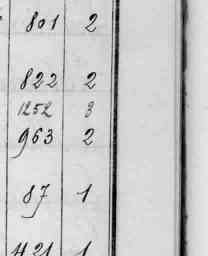 801 2
822 2
1252 3
963 2
87 1
421 1